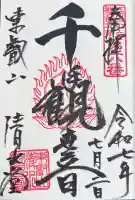 奉拝
千手観世音
令和七年
七月一日
東叡山
清水堂